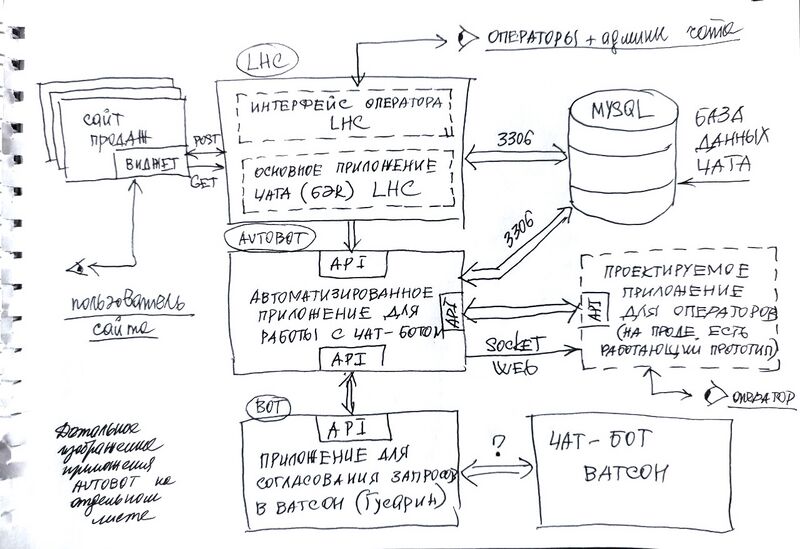 ОПЕРАТОРЫ + админы чата
LHC
САЙТ
ПРОДАЖ
ВИДЖЕТ
POST
GET
ИНТЕРФЕЙС ОПЕРАТОРА
LHC
ОСНОВНОЕ ПРИЛОЖЕНИЕ
ЧАТА (БЭК) LHC
3306
MYSQL
БАЗА
ДАННЫХ
ЧАТА
3306
AVTOBOT
API
АВТОМАТИЗИРОВАННОЕ
ПРИЛОЖЕНИЕ ДЛЯ
РАБОТЫ С ЧАТ-БОТОМ
API
API
пользователь
сайта
API
ПРОЕКТИРУЕМОЕ
ПРИЛОЖЕНИЕ
ДЛЯ ОПЕРАТОРОВ
(НА ПРОДЕ ЕСТЬ
РАБОТАЮЩИЙ ПРОТОТИП)
SOCKET
WEB
ОПЕРАТОР
BOT
API
ПРИЛОЖЕНИЕ ДЛЯ
СОГЛАСОВАНИЯ ЗАПРОСОВ
В ВАТСОН (Гусарин)
?
ЧАТ-БОТ
ВАТСОН
Детальное
изображение
приложения
AVTOBOT на
отдельном
листе